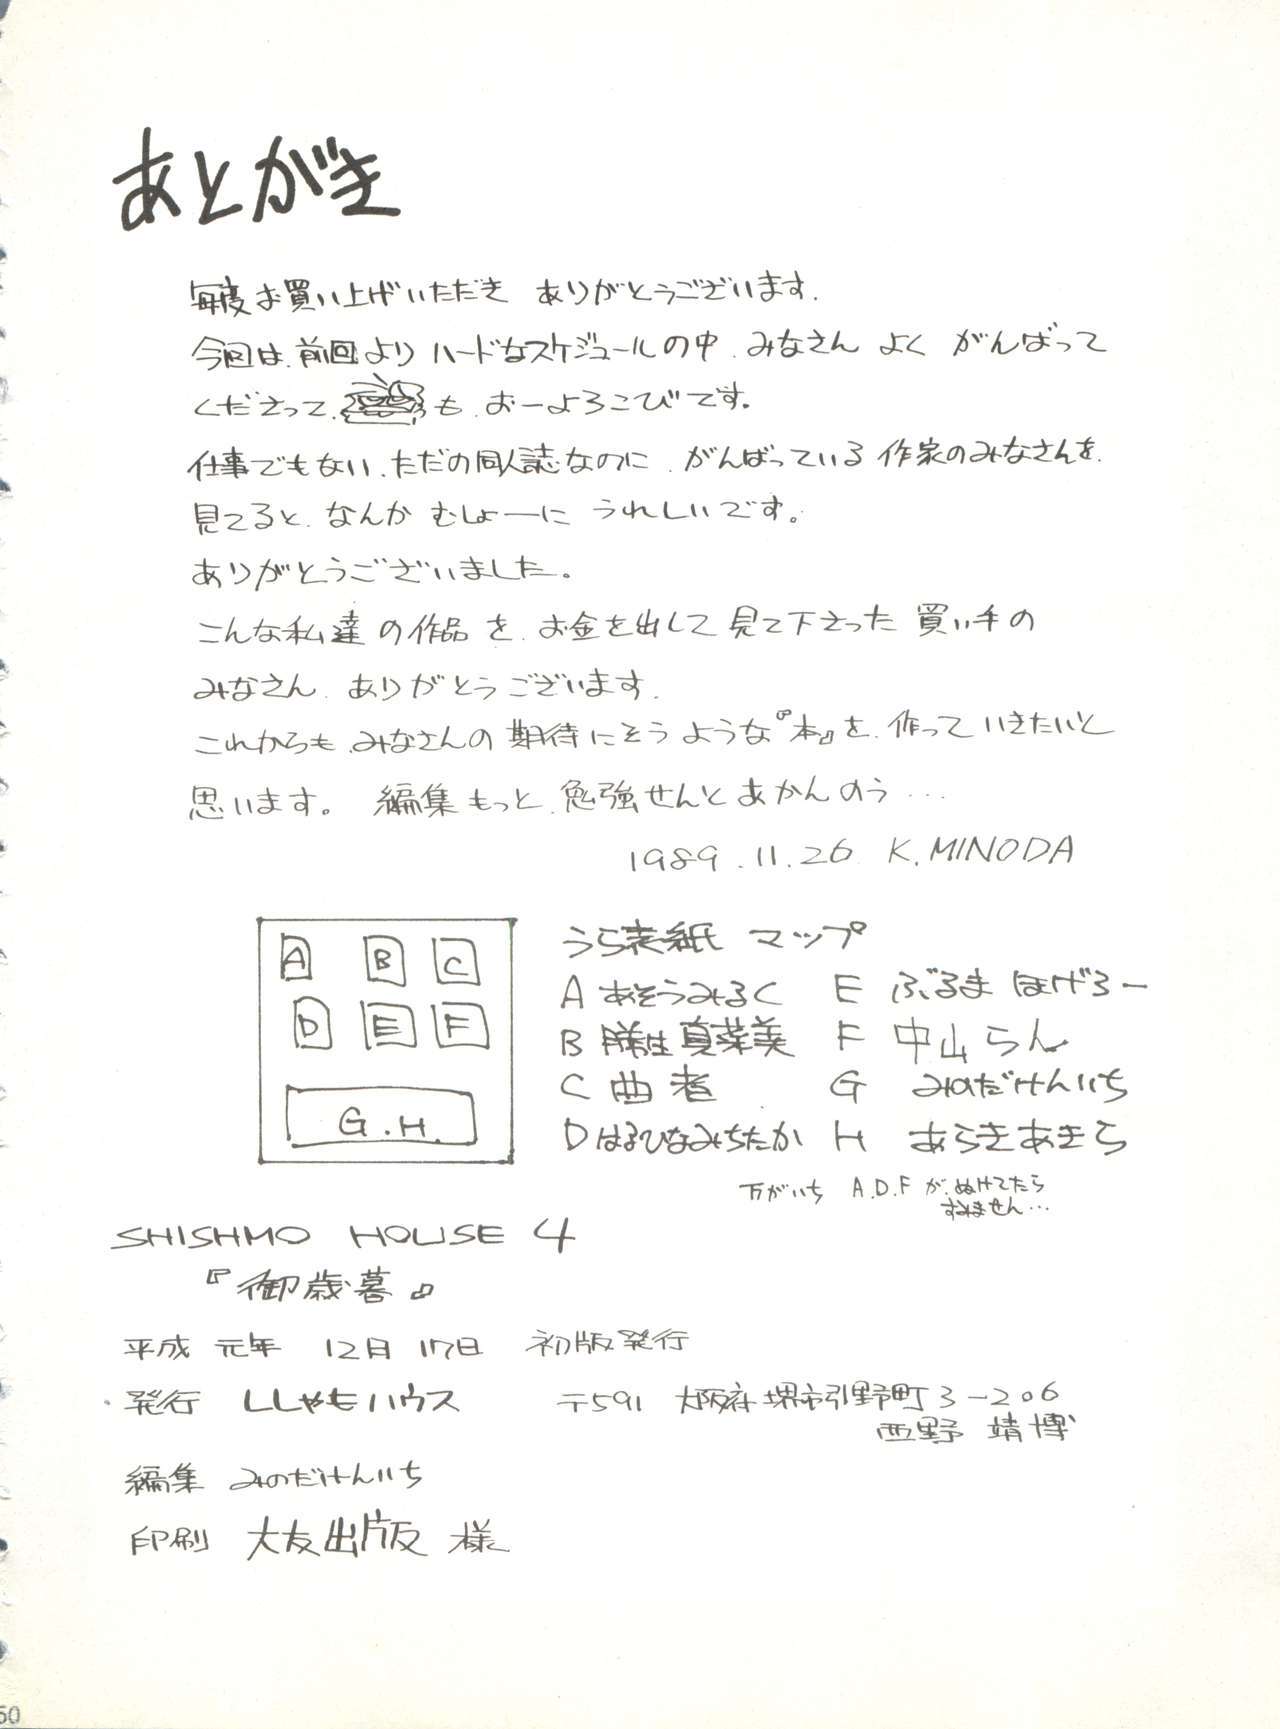 あとがき
毎度お買い上げいただき ありがとうございます.
今回は、前回より ハードなスケジュールの中、みなさん よく がんばって
くださって、 も、おーよろこびです。
仕事でもない、ただの同人誌なのに、がんばっている 作家のみなさんを、
見てると、なんか むしょーに うれしいです。
ありがとうございました。
こんな私達の作品を、お金を出して見て下さった 買い手の
みなさん、ありがとうございます.
これからも、みなさんの期待にそうような『本』を、作っていきたいと
思います。 編集もっと、勉強せんとあかんのう…
1989.11.26 K.MINODA
A B C
D E F
G.H.
うら表紙 マップ
A あそうみるく E ぶるまほげろー
B 勝生真菜美 F 中山らん
C 曲者 G みのだけんいち
D はるひなみちたか H あらきあきら
万がいち A.D.F が、ぬけてたら
すみません…
SHISHMO HOUSE 4
『御歳暮』
平成 元年 12月 17日 初版発行
発行 ししゃもハウス 〒591 大阪府堺市引野町3-206
西野 靖博
編集 みのだけんいち
印刷 大友出版 様
50